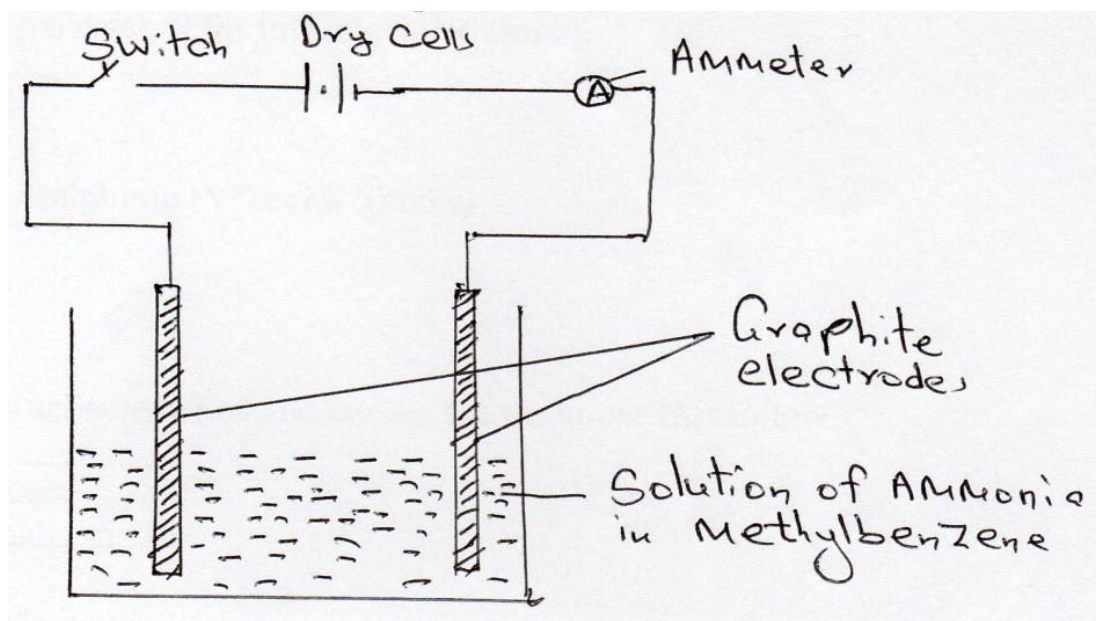 Switch
Dry cells
Ammeter
A
Graphite
electrodes
Solution of Ammonia
in Methylbenzene